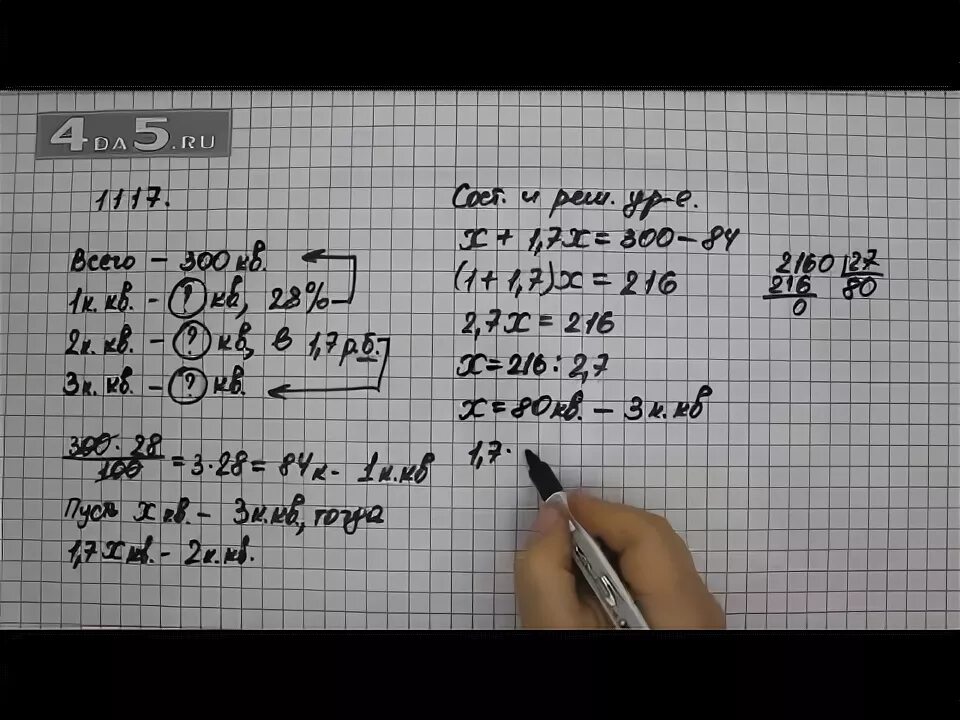 4DA5.RU
1117.
Всего – 300 кв.
1к. кв. – ? кв, 28%
2к. кв. – ? кв, в 1,7 р.б.
3к. кв. – ? кв.
300 · 28 / 100 = 3·28 = 84к - 1к.кв
Пусть х кв. – 3к.кв, тогда
1,7х кв. – 2к.кв.
Сост. и реш. ур-е.
х + 1,7х = 300 – 84
(1 + 1,7)х = 216
2,7х = 216
х = 216 : 2,7
х = 80кв. – 3к.кв
1,7·
2160 27
216 80
0